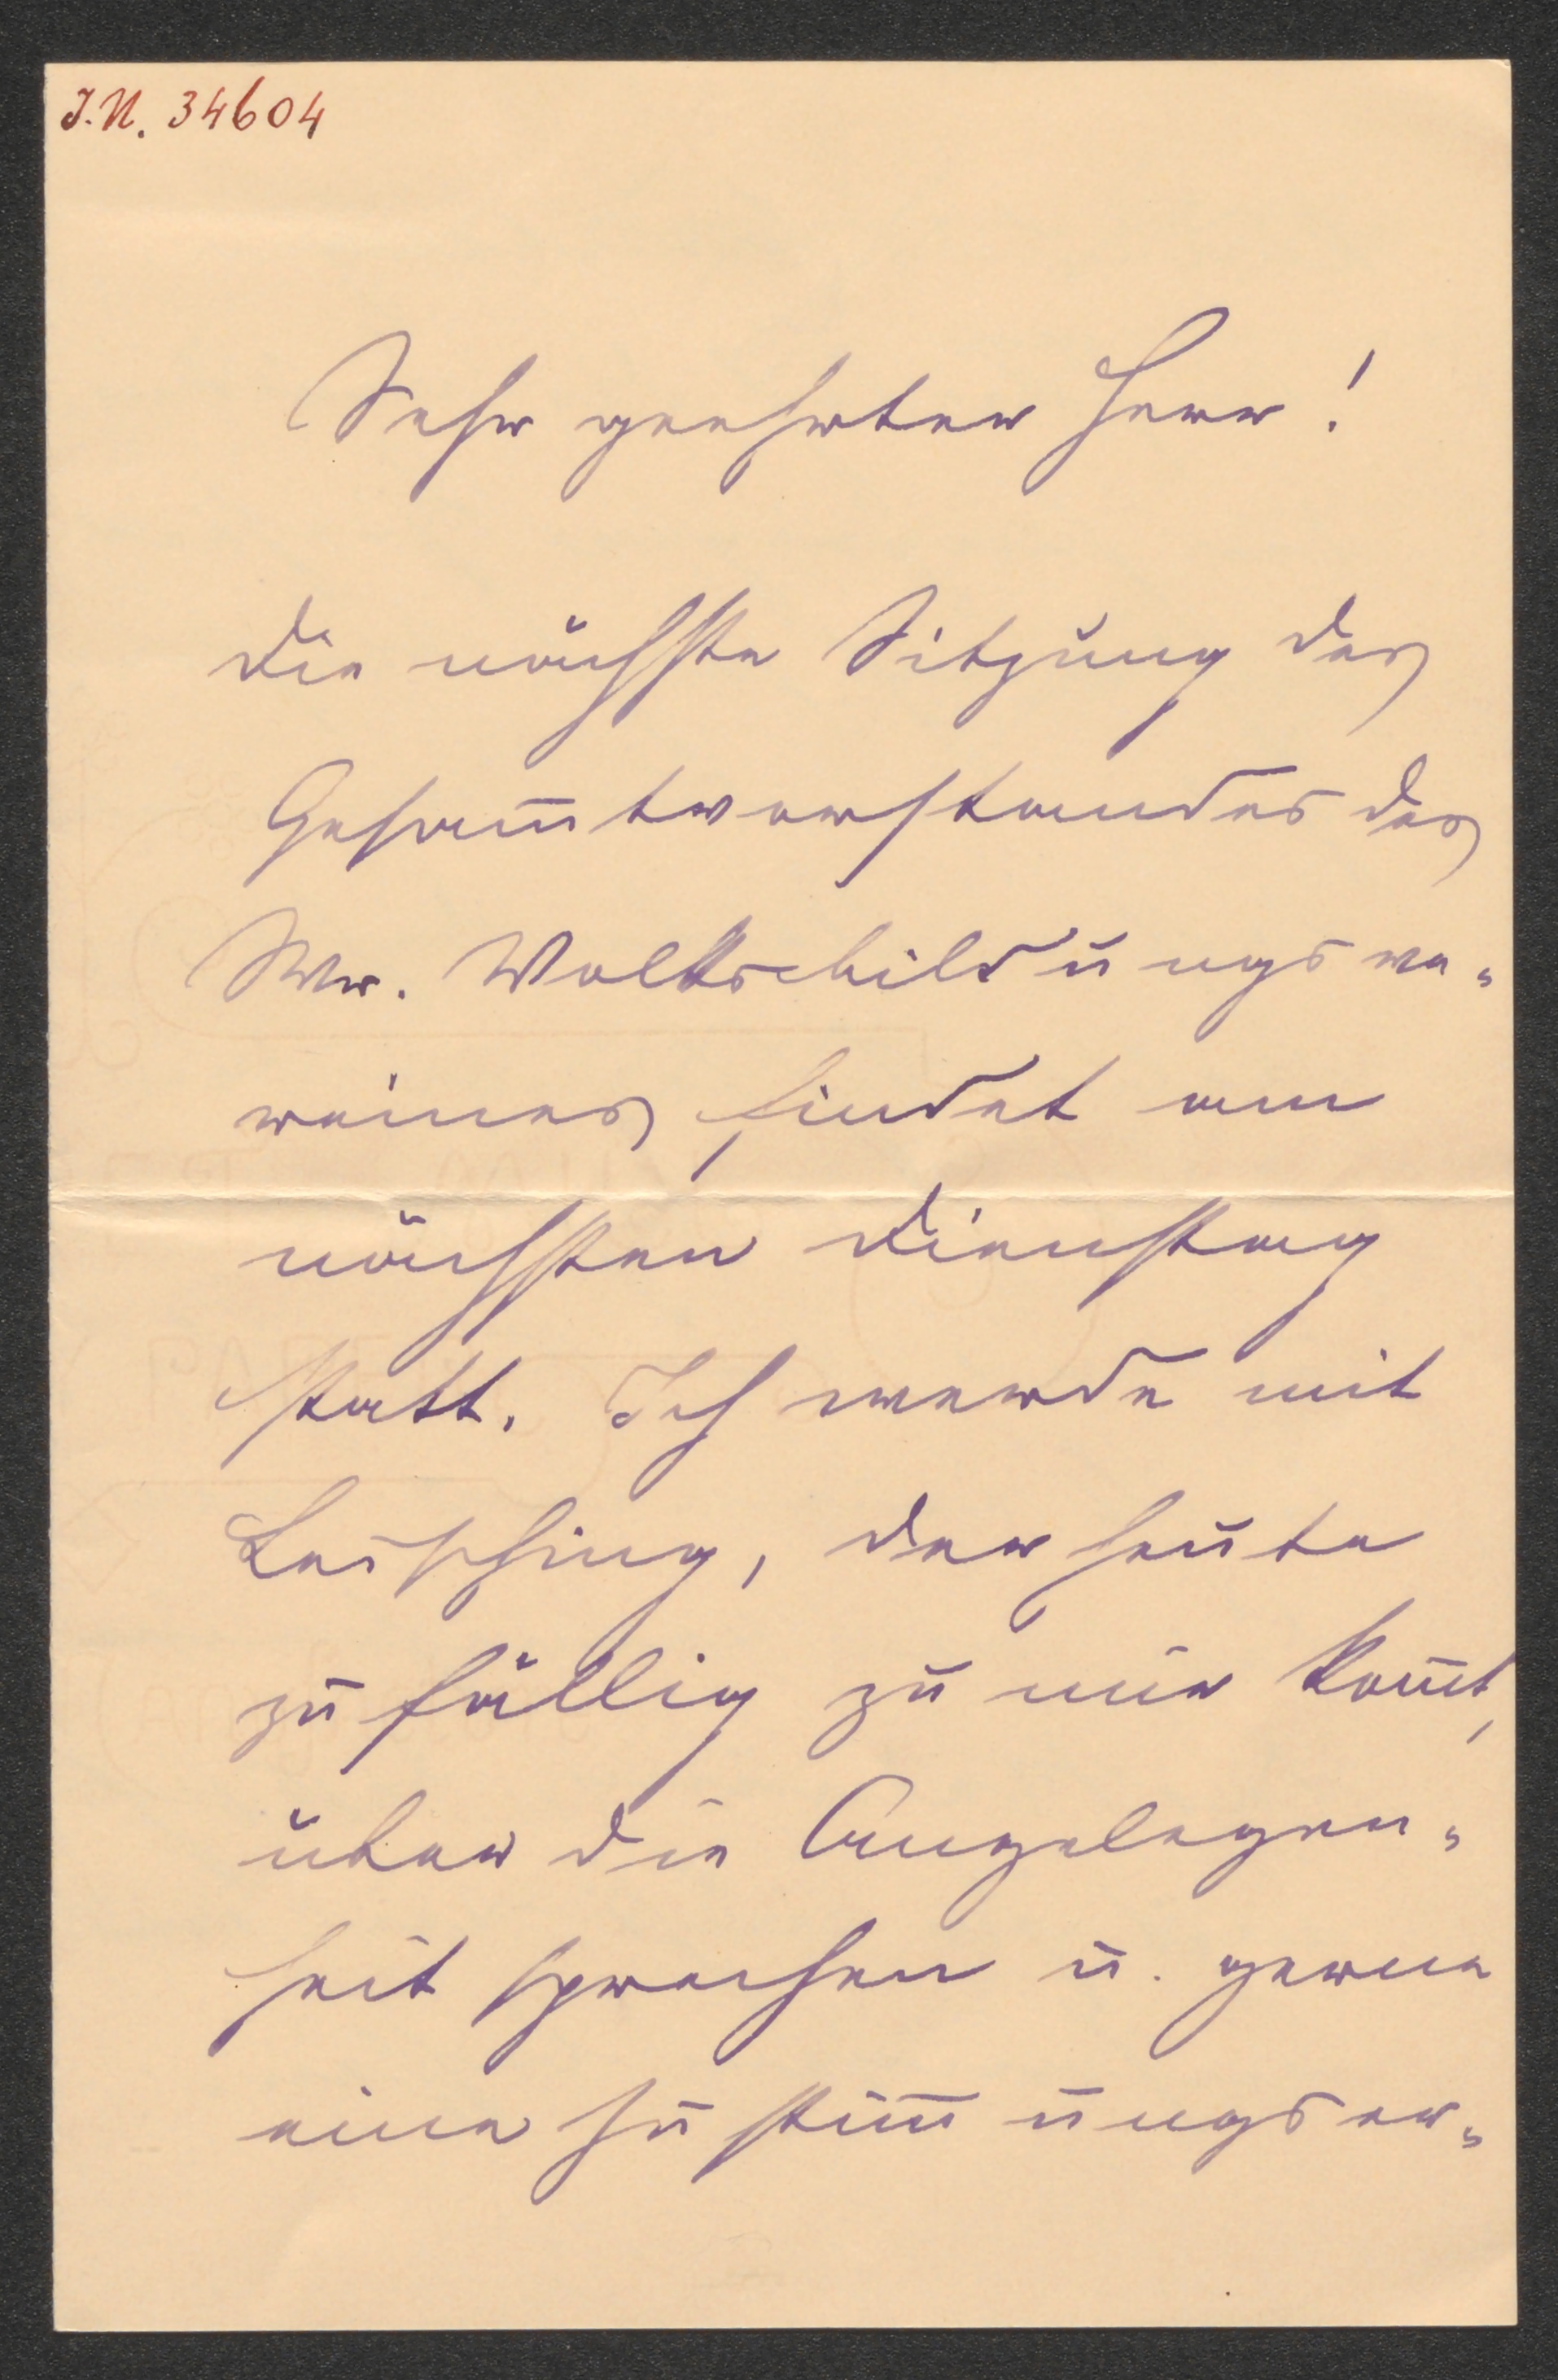 J.N. 34604
Sehr geehrter Herr!
die nächste Sitzung des
Gesam̅tvorstandes des
Wr. Volksbildungsve-
reines findet am
nächsten Dienstag
statt. Ich werde mit
Leisching, der heute
zufällig zu mir kom̅t,
über die Angelegen-
heit sprechen u. gerne
eine Zustim̅ungser-